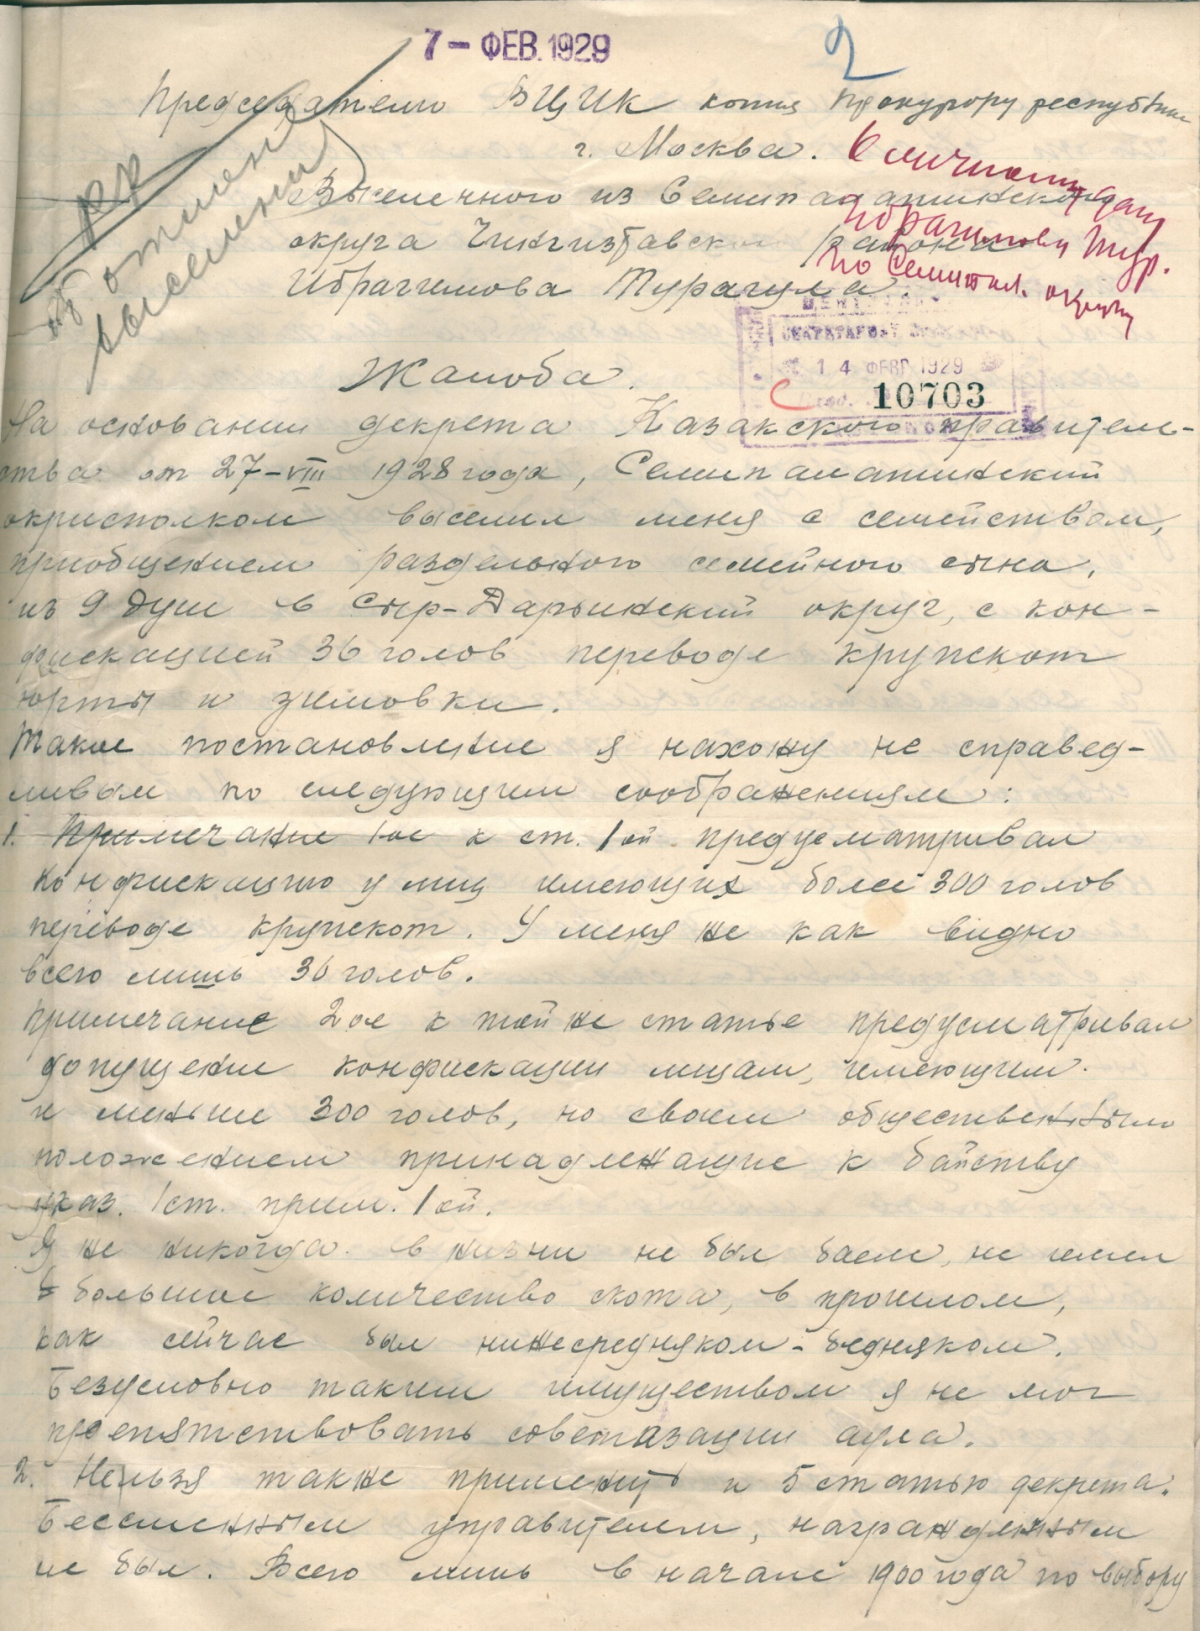 7 - ФЕВ. 1929
2
Председателю ВЦИК копия Прокурору республики
г. Москва.
Выселенного из Семипалатинского
округа Чингизтавского района
Ибрагимова Турагула
об отмене
выселения
К личному делу
Ибрагимова Тур.
по Семипал. округу
СЕКРЕТАРИАТ
14 ФЕВР 1929
10703
Жалоба.
На основании декрета Казакского правитель-
ства от 27-VIII 1928 года, Семипалатинский
окрисполком выселил меня с семейством,
приобщением раздельного семейного сына,
из 9 душ в Сыр-Дарьинский округ, с кон-
фискацией 36 голов переводе крупскот
юрты и зимовки.
Такое постановление я нахожу не справед-
ливым по следующим соображениям:
1. Примечание 1ое к ст. 1ой предусматривал
конфискацию у лиц имеющих более 300 голов
переводе крупскот. У меня же как видно
всего лишь 36 голов.
Примечание 2ое к той же статье предусматривал
допущение конфискации лицам, имеющим
и меньше 300 голов, но своем общественным
положением принадлежащие к байству
указ. 1ст. прим. 1ой.
Я же никогда в жизни не был баем, не имел
большое количество скота, в прошлом,
как сейчас был нижесредняком-бедняком.
Безусловно таким имуществом я не мог
препятствовать советизации аула.
2. Нельзя также применить и 5 статью декрета.
Бессменным управителем, награжденным
не был. Всего лишь в начале 1900 года по выбору